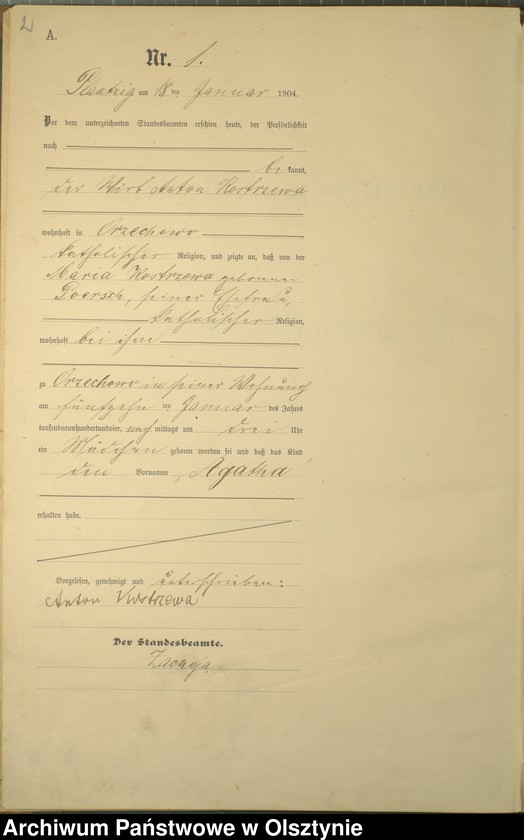 2
A.
Nr. 1.
am 18 ten Januar 1904.
Vor dem unterzeichneten Standesbeamten erschien heute, der Persönlichkeit
nach
be kannt,
der Wirt Anton Kostrzewa
wohnhaft in Orzechowo
katholischer Religion, und zeigte an, daß von der
Maria Kostrzewa geborenen
Poersch, seiner Ehefrau,
katholischer Religion,
wohnhaft bei ihm
zu Orzechowo in seiner Wohnung
am fünfzehn ten Januar des Jahres
tausendneunhundertundvier, nach mittags um drei Uhr
ein Mädchen geboren worden sei und daß das Kind
den Vornamen „Agatha“
erhalten habe.
Vorgelesen, genehmigt und unterschrieben:
Anton Kostrzewa
Der Standesbeamte.
Archiwum Państwowe w Olsztynie